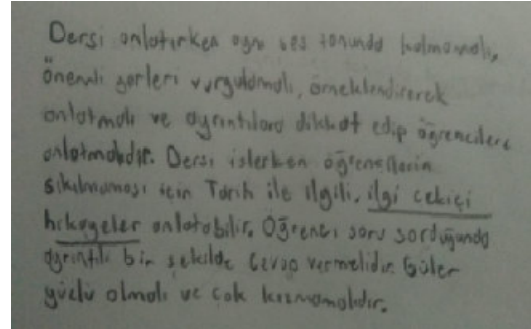 Dersi anlatırken aynı ses tonunda kalmamalı,
önemli yerleri vurgulamalı, örneklendirerek
anlatmalı ve ayrıntılara dikkat edip öğrencilere
anlatmalıdır. Dersi işlerken öğrencilerin
sıkılmaması için Tarih ile ilgili, ilgi çekici
hikayeler anlatabilir. Öğrenci soru sorduğunda
ayrıntılı bir şekilde cevap vermelidir. Güler
yüzlü olmalı ve çok kızmamalıdır.